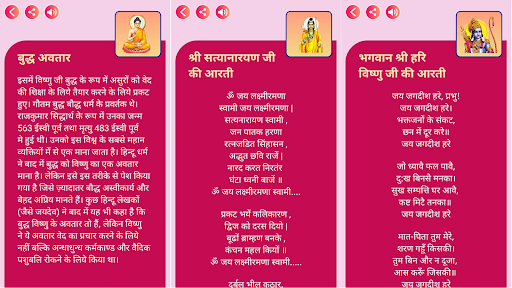 बुद्ध अवतार
इसमें विष्णु जी बुद्ध के रूप में असुरों को वेद
की शिक्षा के लिये तैयार करने के लिये प्रकट
हुए। गौतम बुद्ध बौद्ध धर्म के प्रवर्तक थे।
राजकुमार सिद्धार्थ के रूप में उनका जन्म
563 ईस्वी पूर्व तथा मृत्यु 483 ईस्वी पूर्व
मे हुई थी। उनको इस विश्व के सबसे महान
व्यक्तियों में से एक माना जाता है। हिन्दू धर्म
ने बाद में बुद्ध को विष्णु का एक अवतार
माना है। लेकिन इसे इस तरीके से पेश किया
गया है जिसे ज़्यादातर बौद्ध अस्वीकार्य और
बेहद अप्रिय मानते हैं। कुछ हिन्दू लेखकों
(जैसे जयदेव) ने बाद में यह भी कहा है कि
बुद्ध विष्णु के अवतार तो हैं, लेकिन विष्णु ने
ये अवतार वेद का प्रचार करने के लिये
नहीं बल्कि अन्धाधुन्ध कर्मकाण्ड और वैदिक
पशुबलि रोकने के लिये किया था।
श्री सत्यानारायण जी
की आरती
ॐ जय लक्ष्मीरमणा
स्वामी जय लक्ष्मीरमणा |
सत्यनारायण स्वामी ,
जन पातक हरणा
रत्नजडित सिंहासन ,
अद्भुत छवि राजें |
नारद करत निरतंर
घंटा ध्वनी बाजें ॥
ॐ जय लक्ष्मीरमणा स्वामी....
प्रकट भयें कलिकारण ,
द्विज को दरस दियो |
बूढों ब्राम्हण बनके ,
कंचन महल कियों ॥
ॐ जय लक्ष्मीरमणा स्वामी.....
दुर्बल भील कठार,
भगवान श्री हरि
विष्णु जी की आरती
जय जगदीश हरे, प्रभु!
जय जगदीश हरे।
भक्तजनों के संकट,
छन में दूर करे॥
जय जगदीश हरे
जो ध्यावै फल पावै,
दुःख बिनसे मनका।
सुख सम्पत्ति घर आवै,
कष्ट मिटै तनका॥
जय जगदीश हरे
मात-पिता तुम मेरे,
शरण गहूँ किसकी।
तुम बिन और न दूजा,
आस करूँ जिसकी॥
जय जगदीश हरे